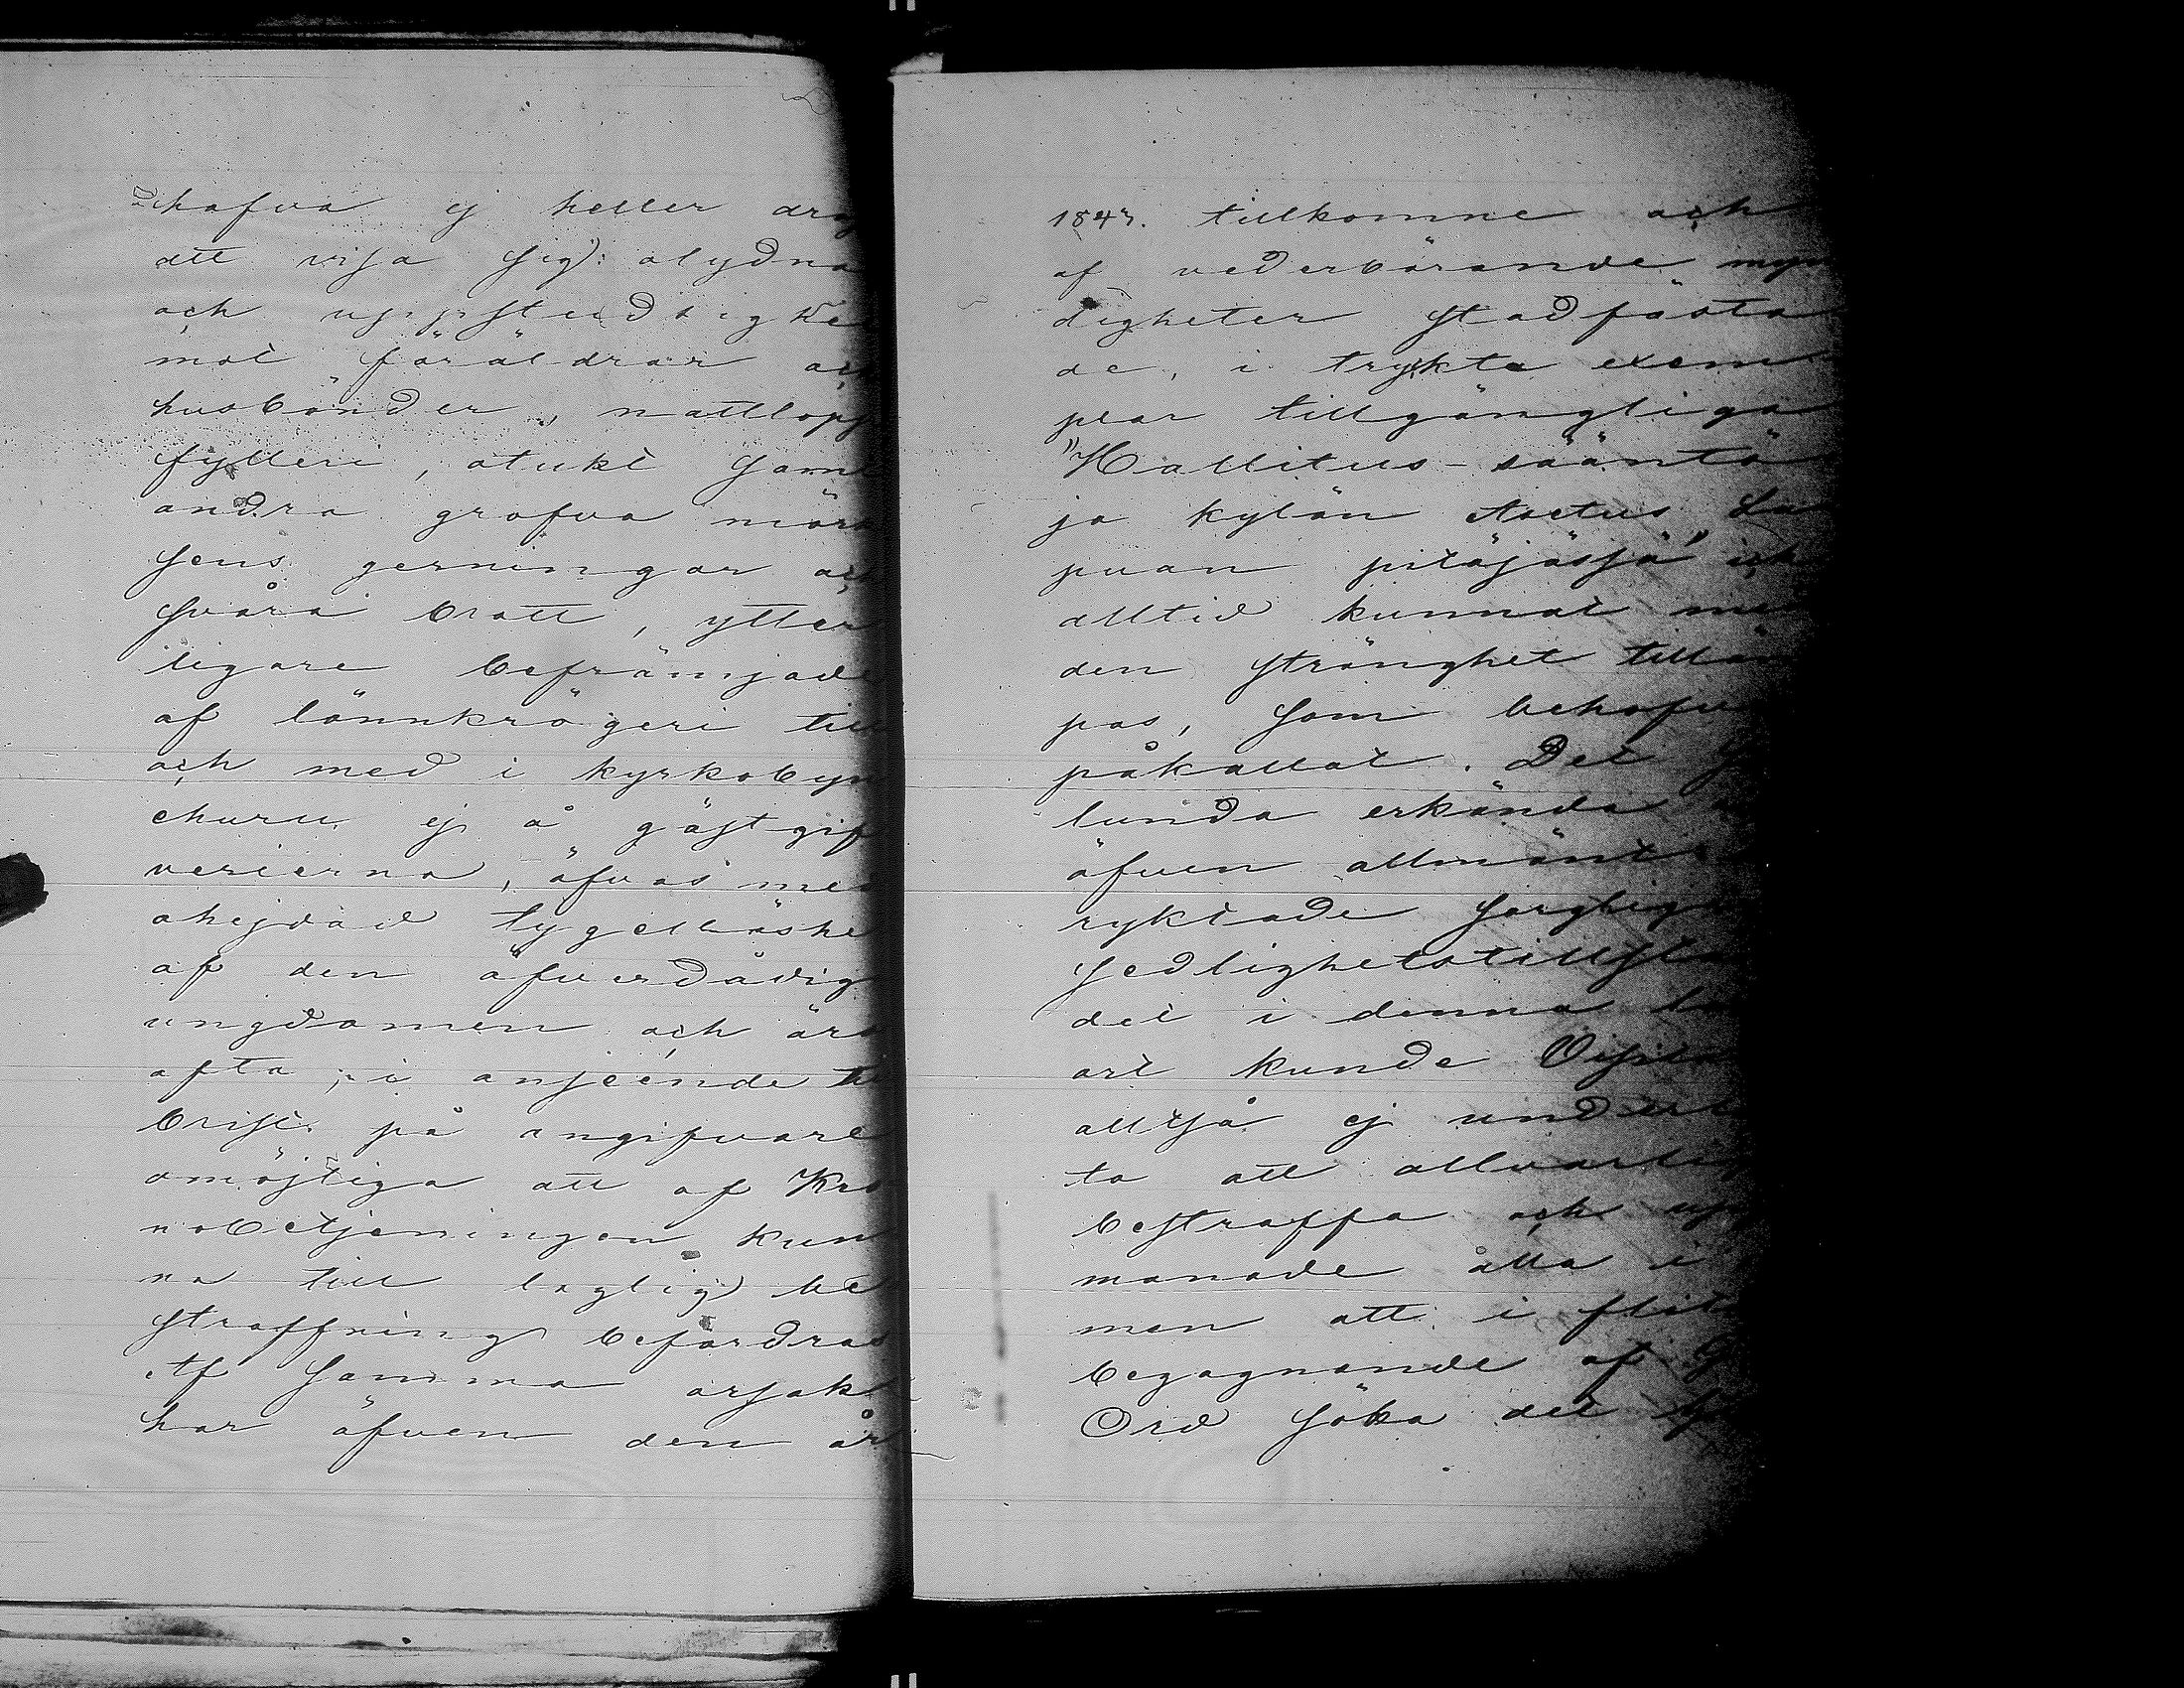 hafva ej heller
att visa sig: olydna
och uppstudsighe
mot föräldrar och
husbönder, nattlopp
fylleri, otukt samt
andra grofva mörk
sens gerningar och
svåra brott, ytter
ligare befrämjade
af lönnkrögeri till
och med i kyrkobyn
ehuru ej å gästgif
verierna, öfvas med
ohejdad tygellöshe
af den öfverdådig
ungdomen och äro
ofta, i anseende ti
brist på angifvare
omöjliga att af Kro
nobetjeningen kun
na till laglig be
straffning befordras
Af samma orsak
har äfven den år
1847. tillkomne och
af vederbörande myn
digheter stadfäста
de, i tryckta exem
plar tillgängliga
"Hallitus-sääntö
ja kylän Asetus, La
puan pitäjässä" ick
alltid kunnat med
den stränghet tilläm
pas, som behofv
påkallat. Det så
lunda erkända
äfven allmänt
ryktade sorgliga
sedlighetstillstån
det i denna
ort kunde Visita
alltså ej underlå
ta att allvarlig
bestraffa och upp
manade alla i
men att i flit
begagnande af G
Ord söka det